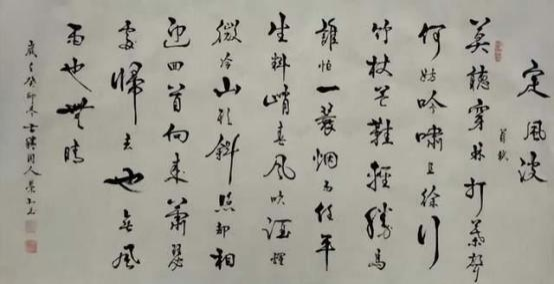 定風波
莫聽穿林打葉聲
何妨吟嘯且徐行
竹杖芒鞋輕勝馬
誰怕一蓑烟雨任平
生料峭春風吹酒醒
微冷山頭斜照却相
迎回首向來蕭瑟
處歸去也無風
雨也無晴
歲在癸卯冬